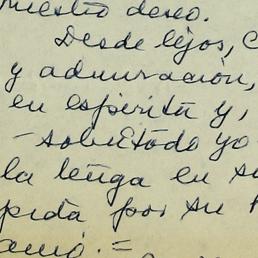 nuestro deseo.
Desde lejos, c
y admiración,
en espíritu y,
- sobretodo yo
la tenga en su
pida por su
amó. =